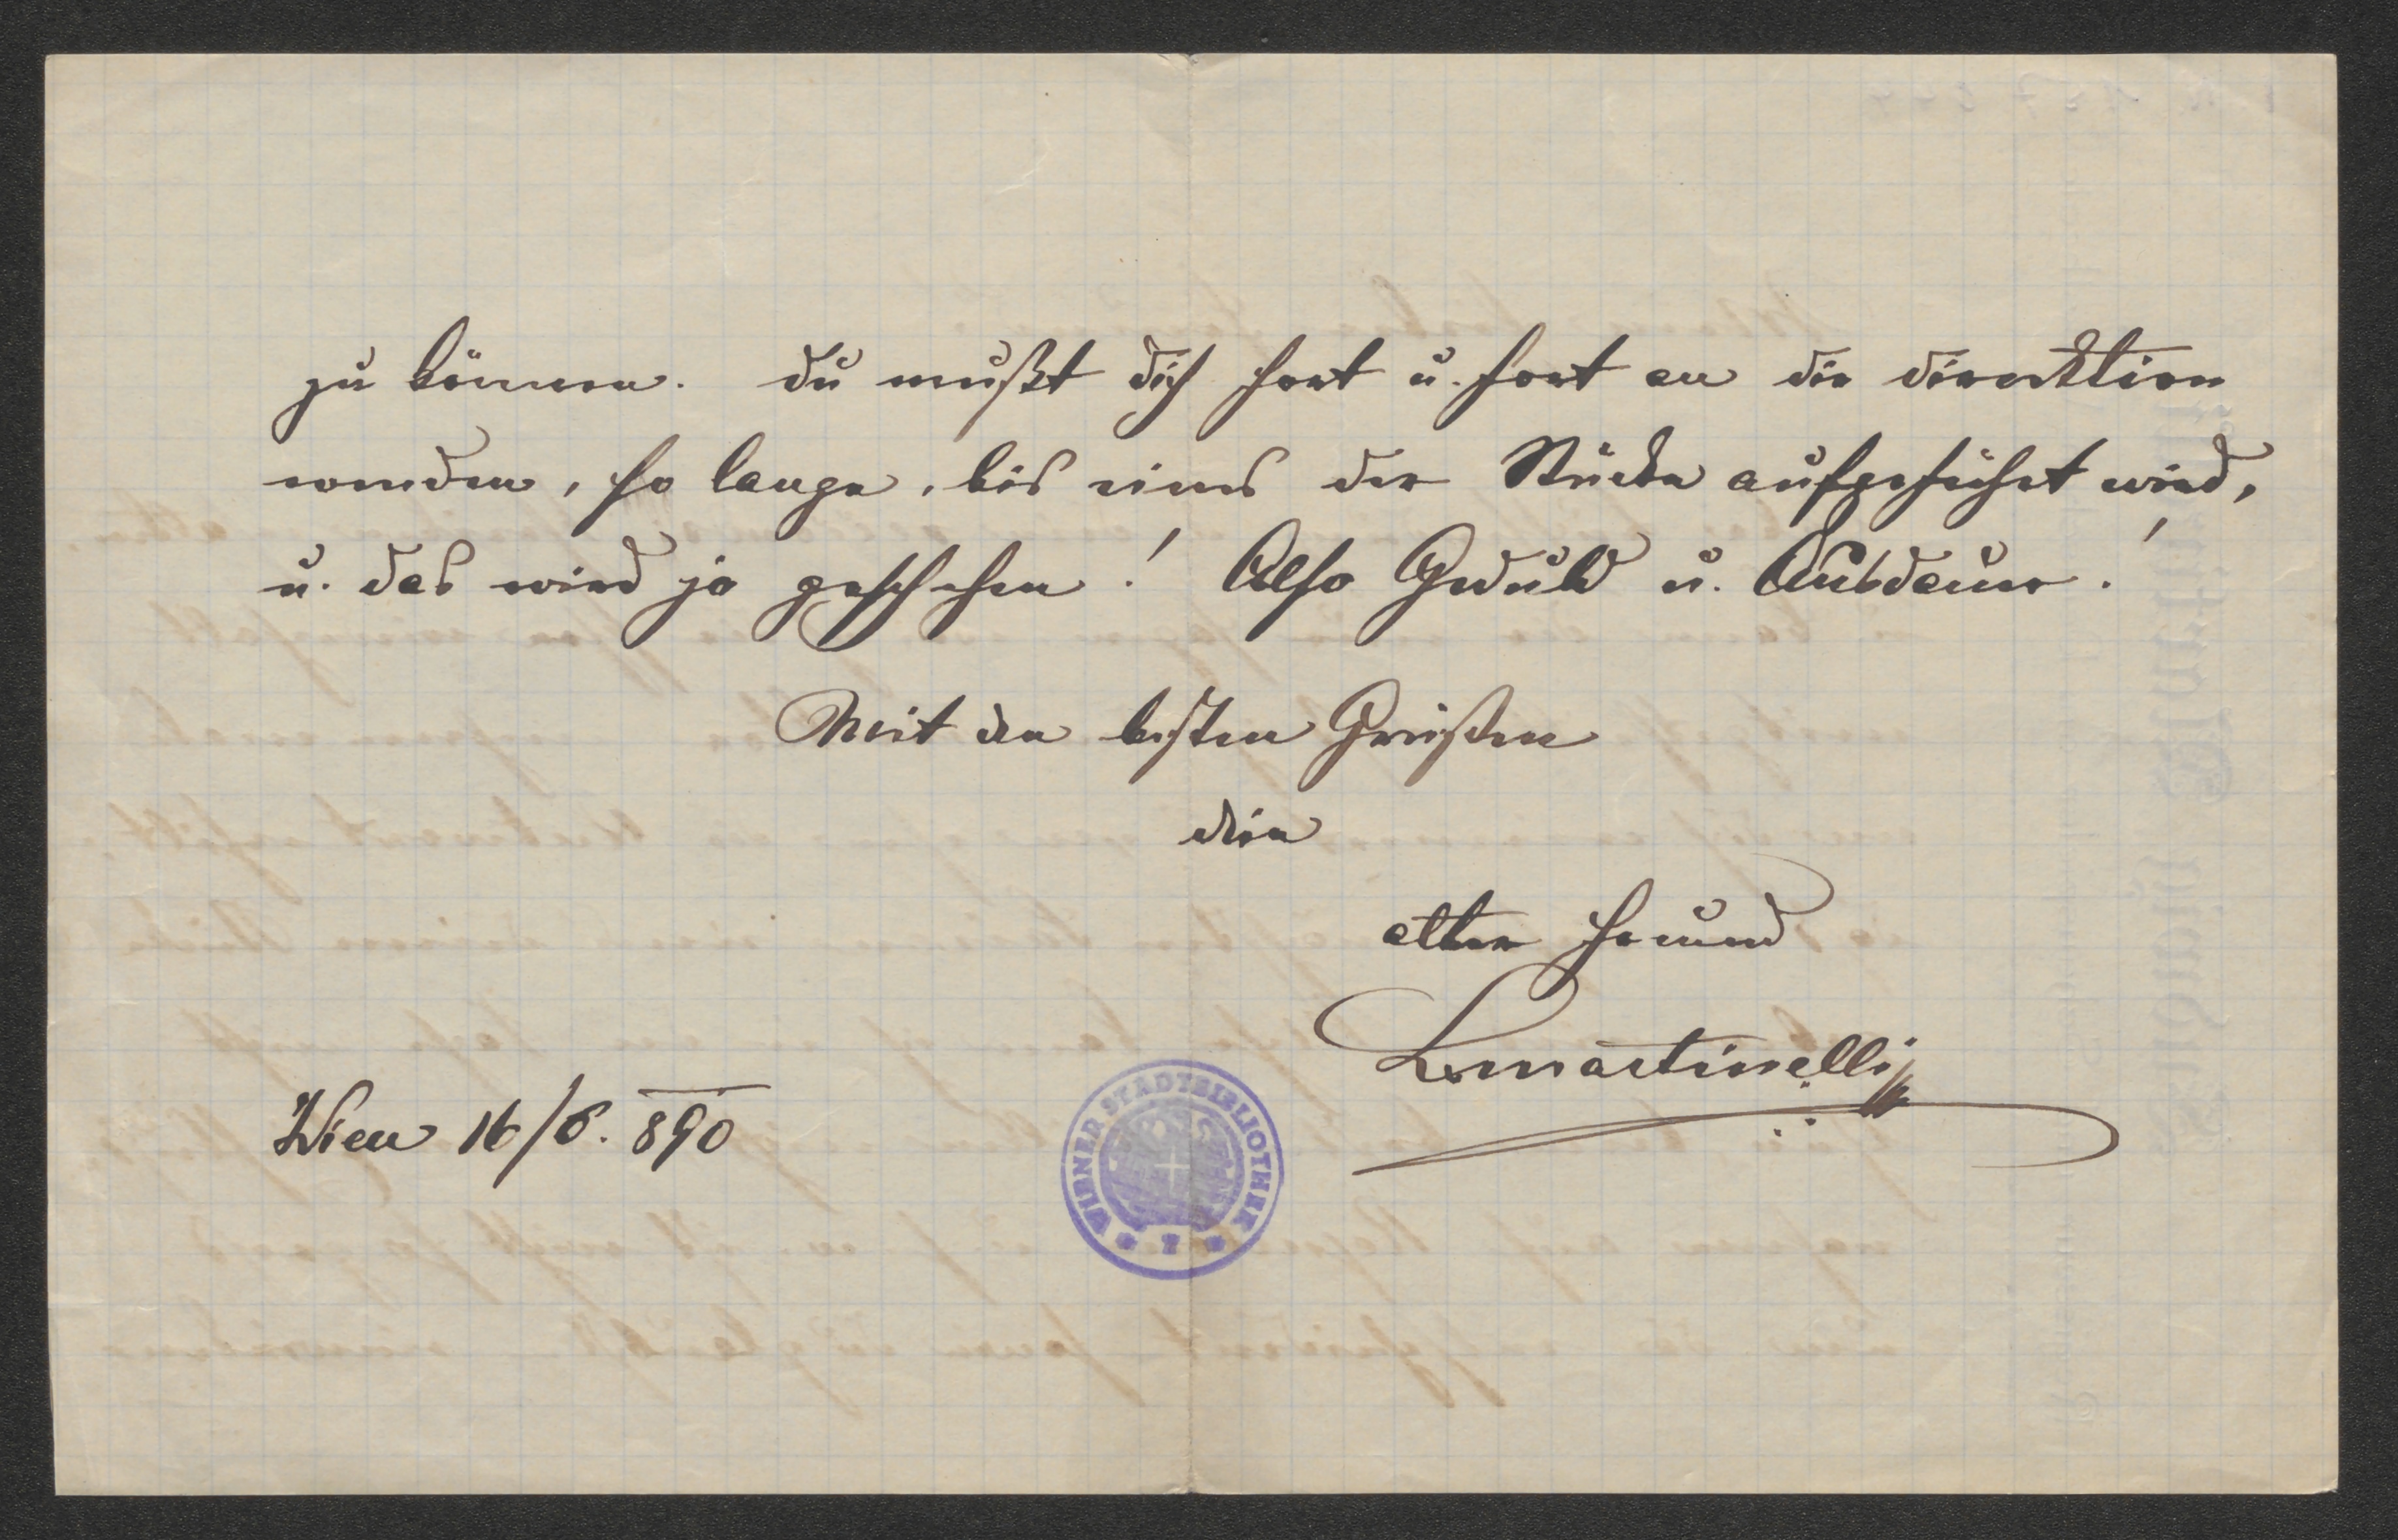 zu können. Du mußt dich fort u. fort an die Direktion
wenden, so lange, bis eines der Stücke aufgeführt wird,
u. das wird ja geschehen! Also Geduld u. Ausdauer!
Mit den besten Grüßen
dein
alter Freund
LMartinelli
Wien 16/6. 890
WIENER STADTBIBLIOTHEK